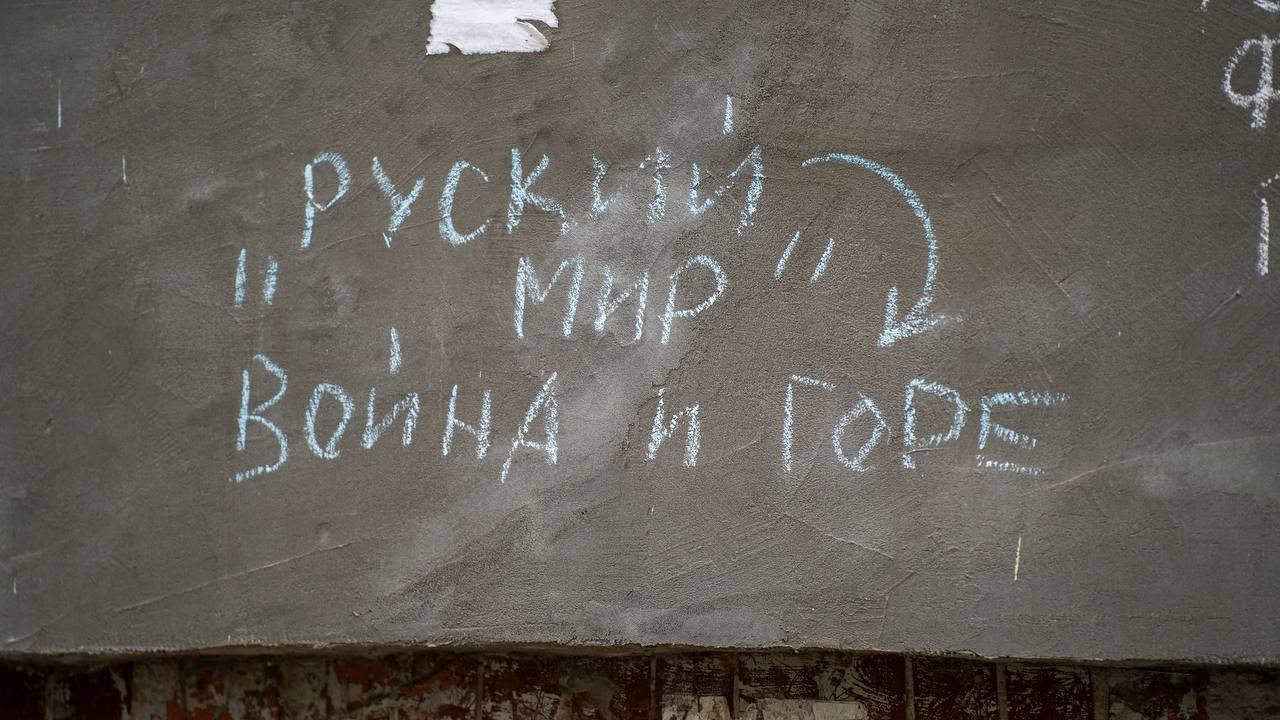 "РУСКИЙ
МИР"
ВОЙНА И ГОРЕ